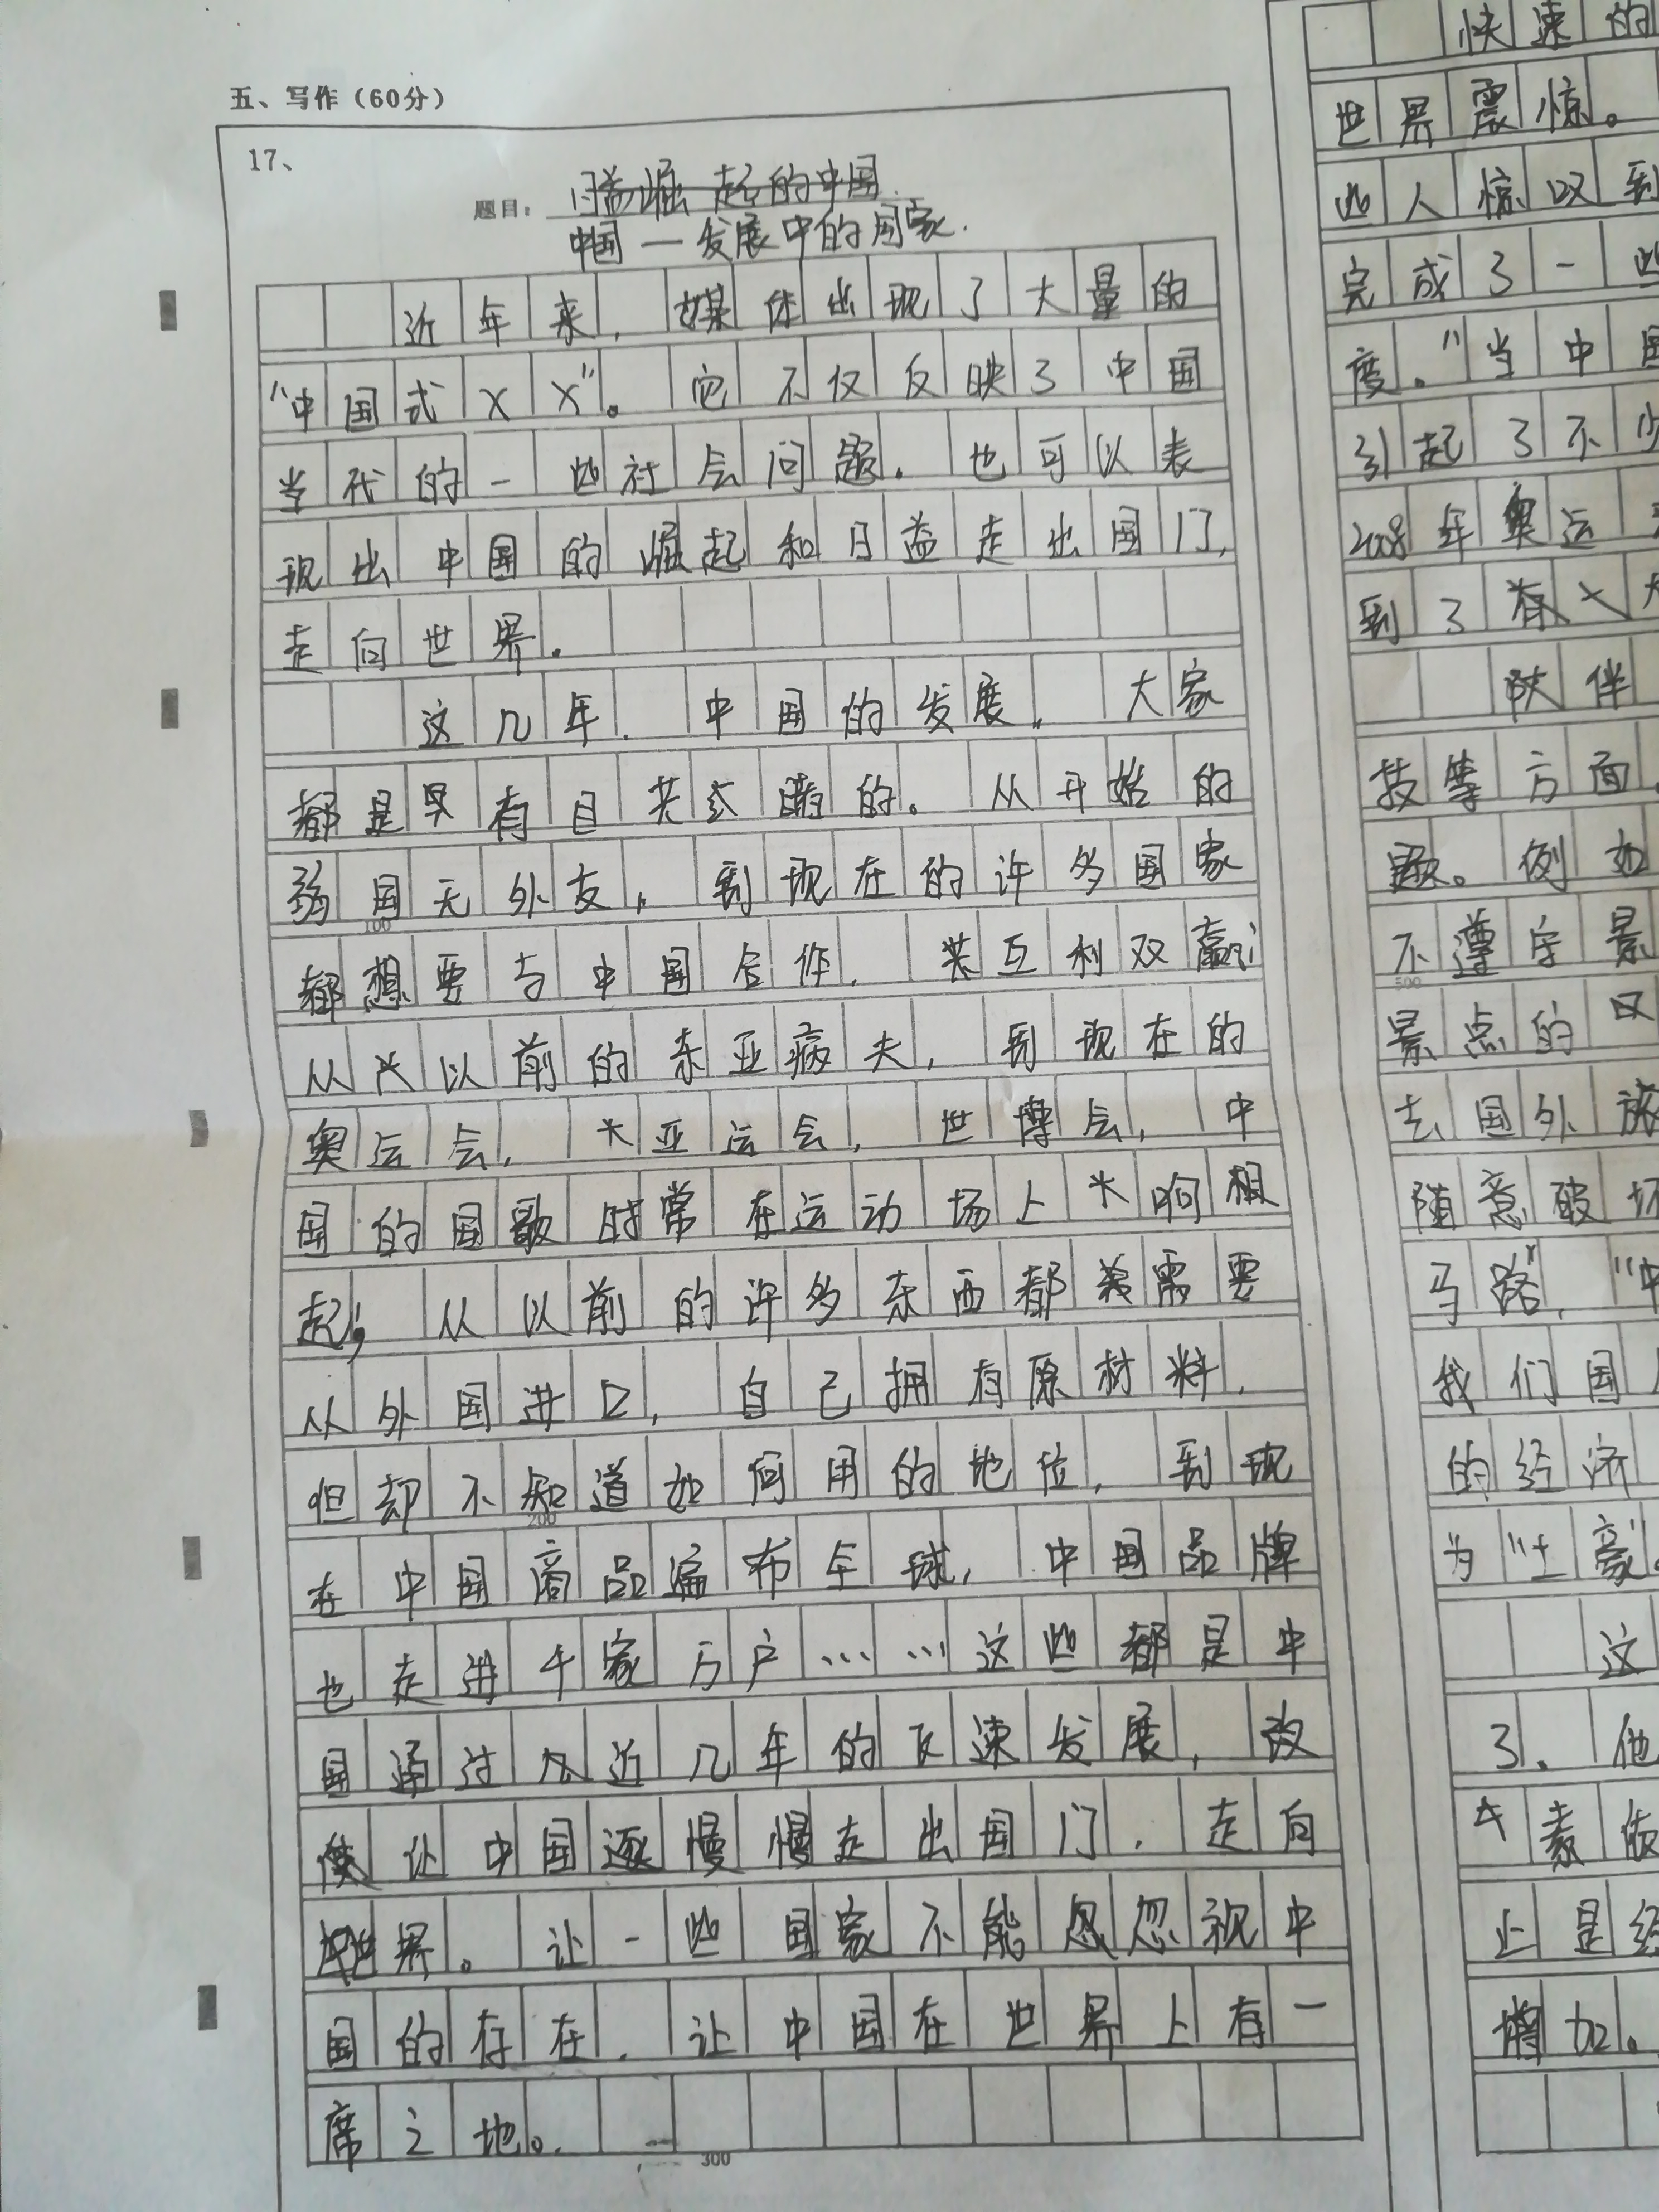 五、写作（60分）
17、
题目：日益崛起的中国
中国一发展中的国家.
近年来，媒体出现了大量的
“中国式××”。它不仅反映了中国
当代的一些社会问题．也可以表
现出中国的崛起和日益走出国门，
走向世界．
这几年．中国的发展，大家
都是有目共睹的。从开始的
弱国无外友，到现在的许多国家
都想要与中国合作，互利双赢；
从以前的东亚病夫，到现在的
奥运会，亚运会，世博会，中
国的国歌时常在运动场上响
起；从以前的许多东西都需要
从外国进口，自己拥有原材料．
但却不知道如何用的地位，到现
100
200
在中国商品遍布全球，中国品牌
也走进千家万户……这些都是中
国通过近几年的飞速发展，
让中国慢慢走出国门．走向
世界。让一些国家不能忽视中
国的存在．让中国在世界上有一
席之地。
300
快速的
世界震惊。
些人惊叹到
完成了一些
度。”当中国
引起了不少
2008年奥运
到了
陪伴
技等方面
题。例如
不遵守景
500
景点的
去国外旅
随意破坏
马路”，“中
我们国
的经济
为“土豪”
这
了．他
素质
止是经
增加。